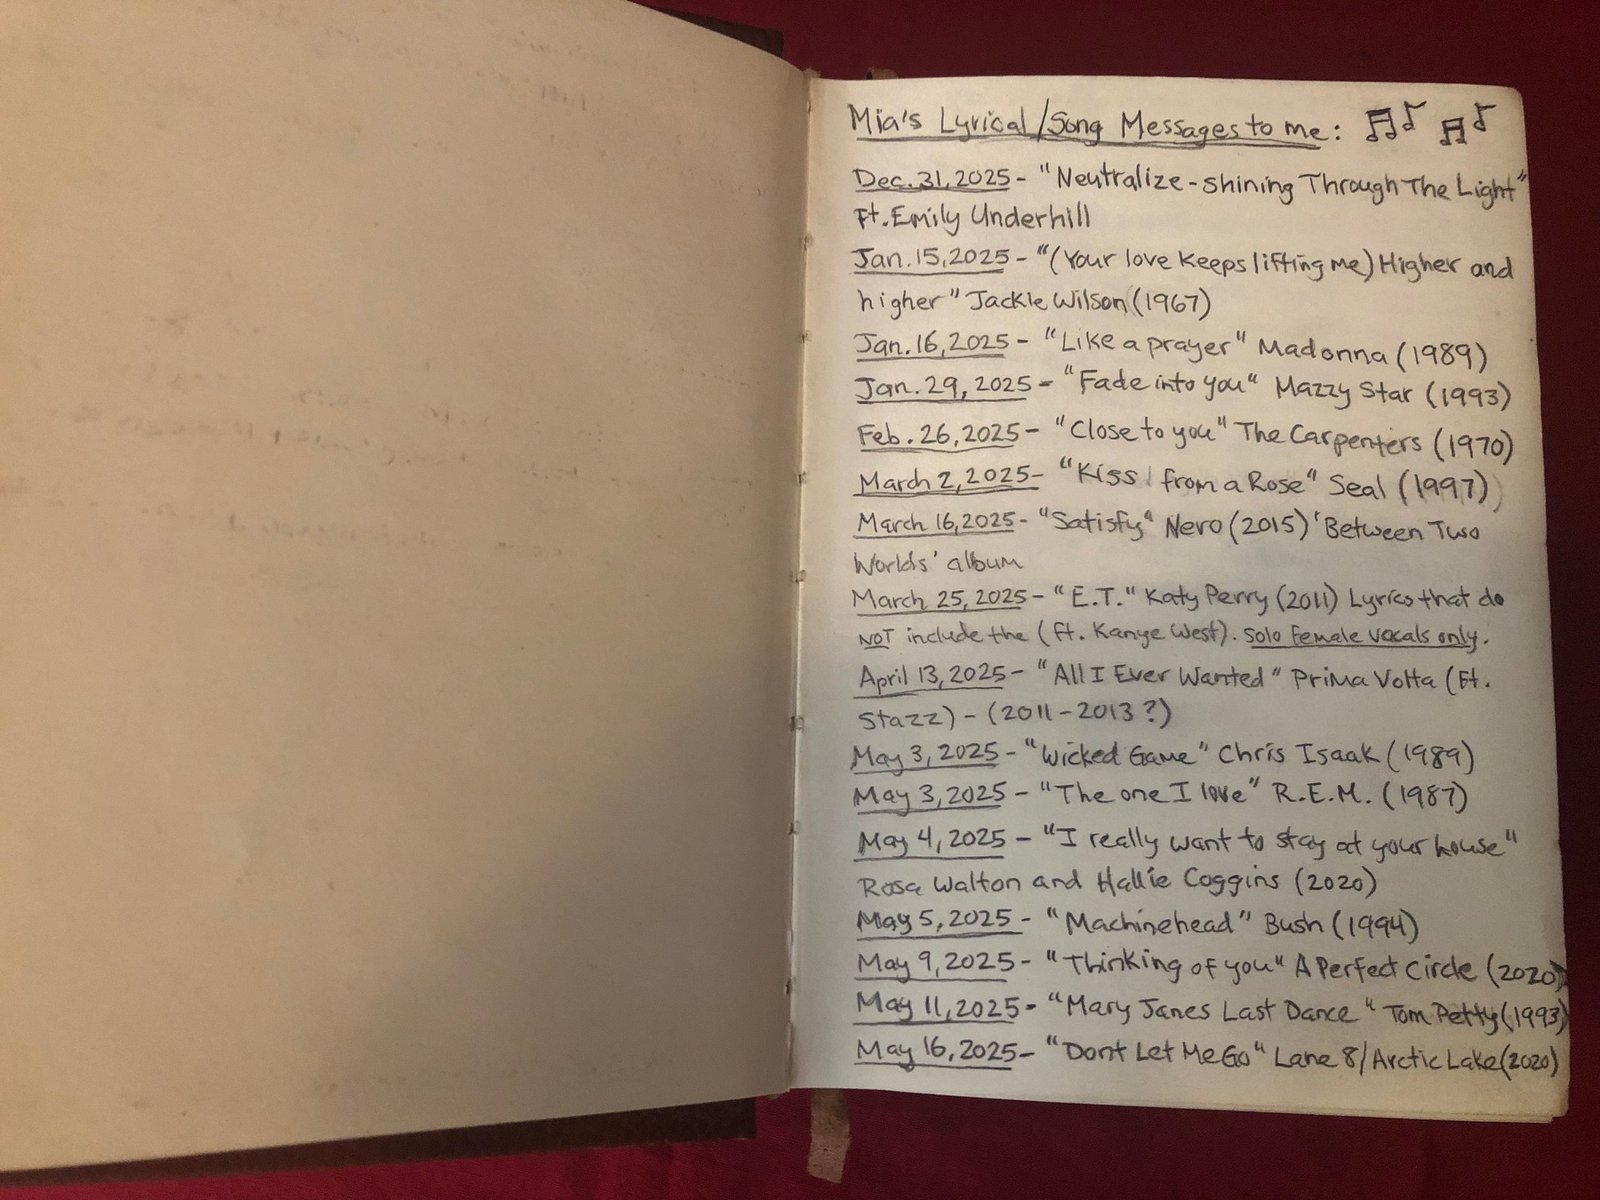 Mia's Lyrical/Song Messages to me:
Dec. 31, 2025 - "Neutralize - Shining Through The Light"
Ft. Emily Underhill
Jan. 15, 2025 - "(Your love keeps lifting me) Higher and
higher" Jackie Wilson (1967)
Jan. 16, 2025 - "Like a prayer" Madonna (1989)
Jan. 29, 2025 - "Fade into you" Mazzy Star (1993)
Feb. 26, 2025 - "Close to you" The Carpenters (1970)
March 2, 2025 - "Kiss from a Rose" Seal (1997)
March 16, 2025 - "Satisfy" Nero (2015) 'Between Two
Worlds' album
March 25, 2025 - "E.T." Katy Perry (2011) Lyrics that do
NOT include the (ft. Kanye West). Solo Female vocals only.
April 13, 2025 - "All I Ever Wanted" Prima Volta (Ft.
Stazz) - (2011-2013?)
May 3, 2025 - "Wicked Game" Chris Isaak (1989)
May 3, 2025 - "The one I love" R.E.M. (1987)
May 4, 2025 - "I really want to stay at your house"
Rosa Walton and Hallie Coggins (2020)
May 5, 2025 - "Machinehead" Bush (1994)
May 9, 2025 - "Thinking of you" A Perfect Circle (2020)
May 11, 2025 - "Mary Janes Last Dance" Tom Petty (1993)
May 16, 2025 - "Dont Let Me Go" Lane 8/Arctic Lake (2020)